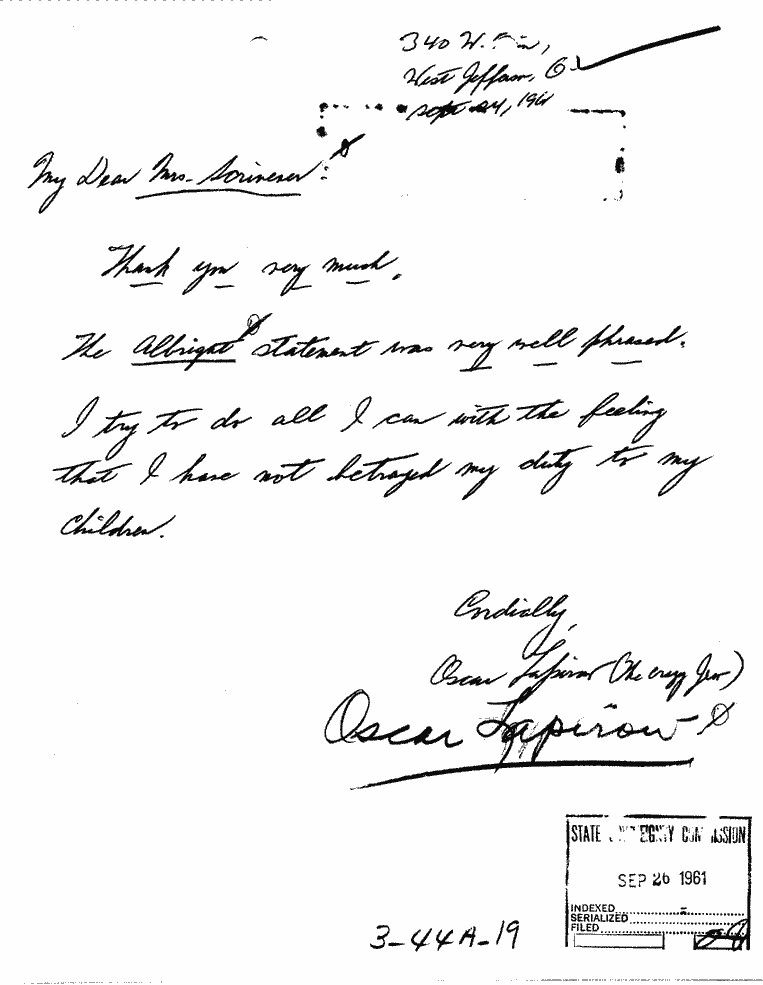 340 W. Main,
West Jefferson, O.
Sept 24, 1961
My Dear Mrs. Scrivener:
Thank you very much.
The Albright statement was very well phrased.
I try to do all I can with the feeling
that I have not betrayed my duty to my
children.
Cordially,
Oscar Lapirow (The crazy Jew)
Oscar Lapirow
STATE SOVEREIGNTY COMMISSION
SEP 26 1961
INDEXED
SERIALIZED
FILED
3-44A-19